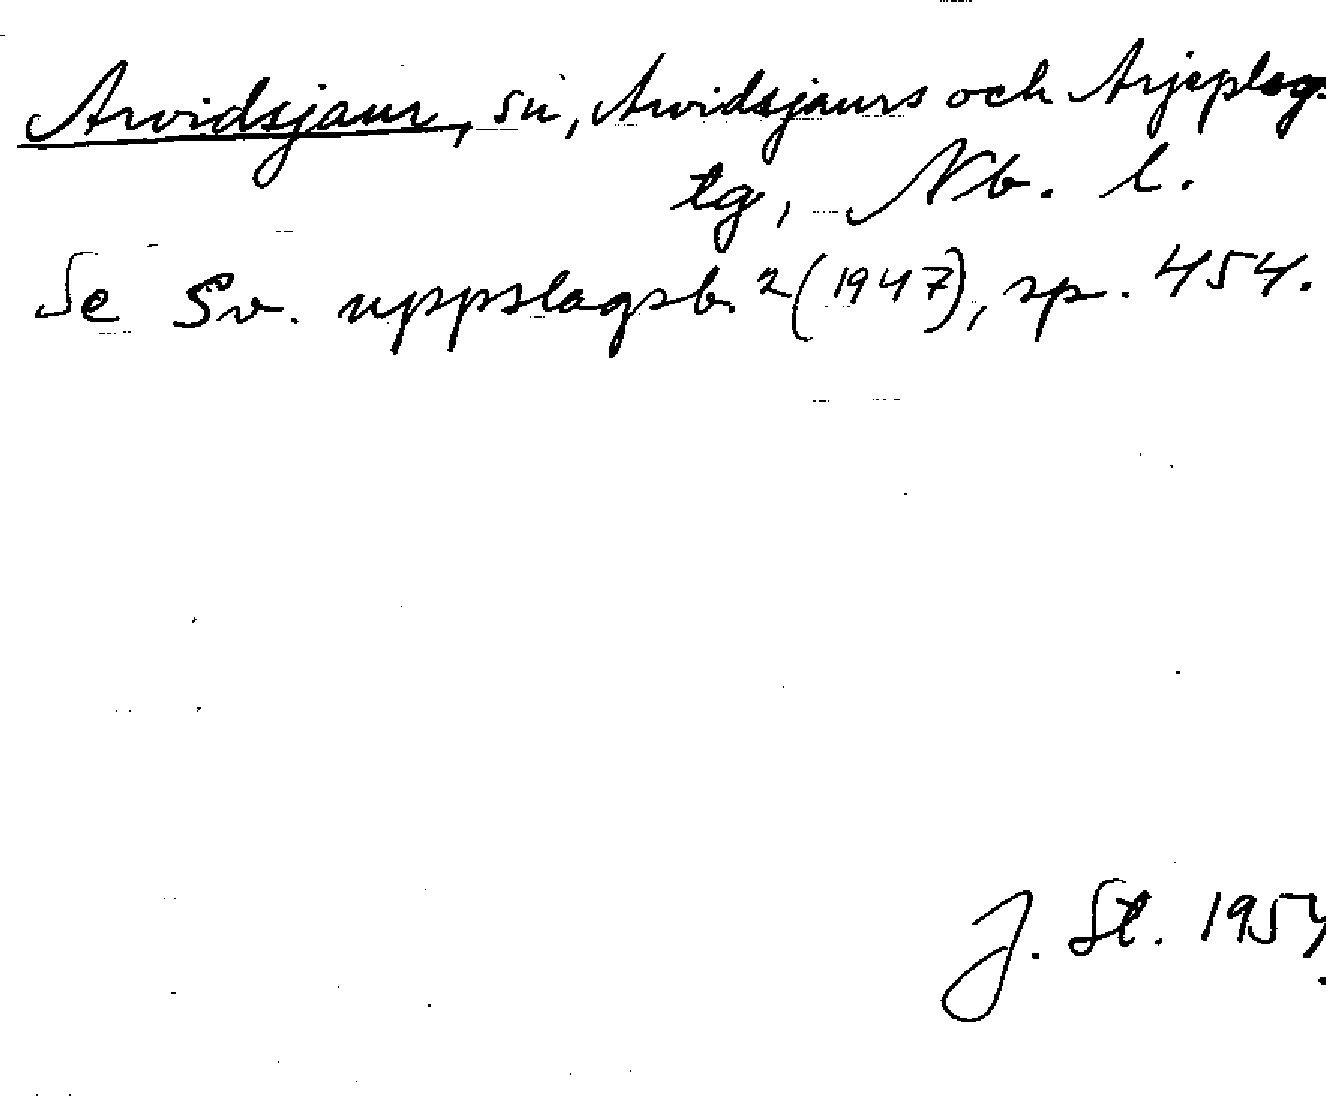 Arvidsjaur, sn, Arvidsjaurs och Arjeplogs
tg, Nb. l.
Se Sv. uppslagsb. 2 (1947), sp. 454.
J. St.